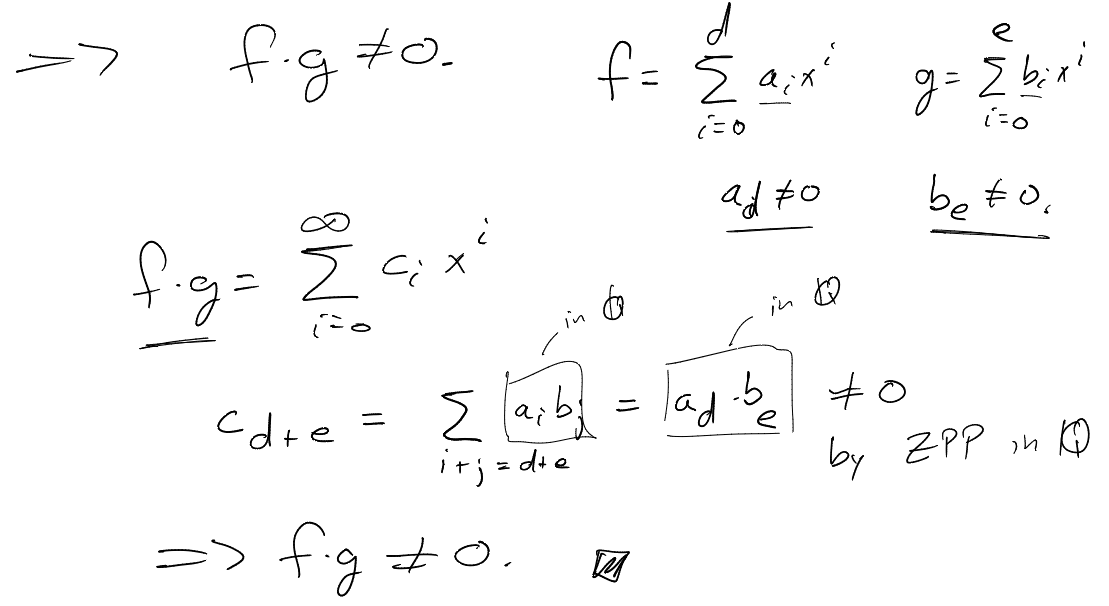 ⇒ f·g ≠ 0. f = ∑_{i=0}^{d} a_i x^i g = ∑_{i=0}^{e} b_i x^i
a_d ≠ 0 b_e ≠ 0.
f·g = ∑_{i=0}^{∞} c_i x^i
in ℚ in ℚ
c_{d+e} = ∑_{i+j=d+e} a_i b_j = a_d · b_e ≠ 0
by ZPP in ℚ
⇒ f·g ≠ 0.